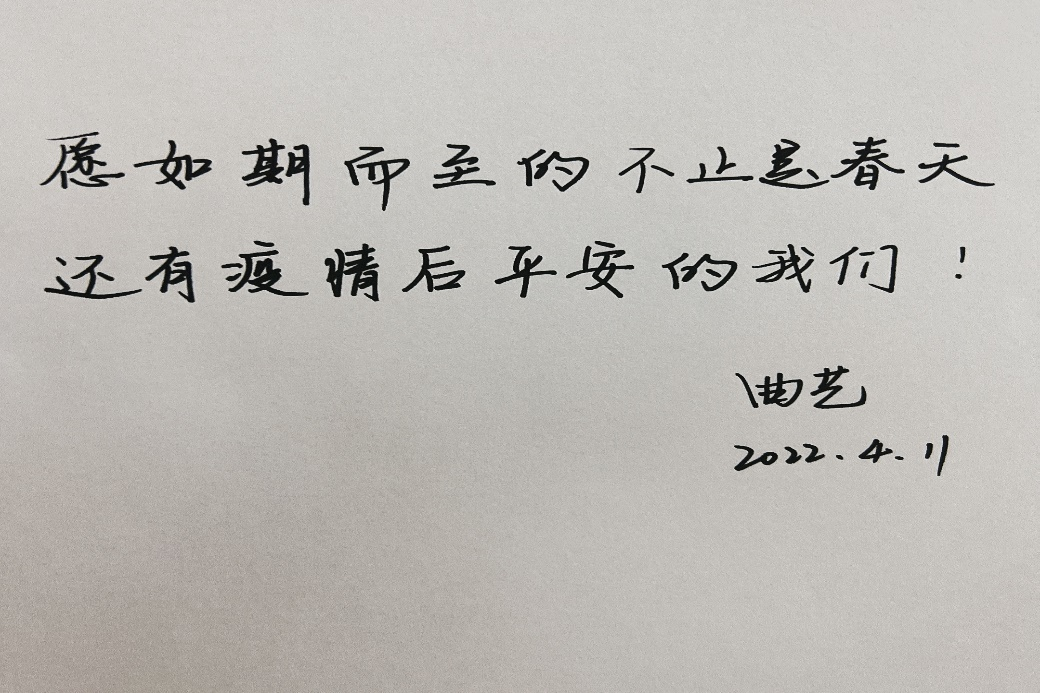 愿如期而至的不止是春天
还有疫情后平安的我们！
曲艺
2022.4.11